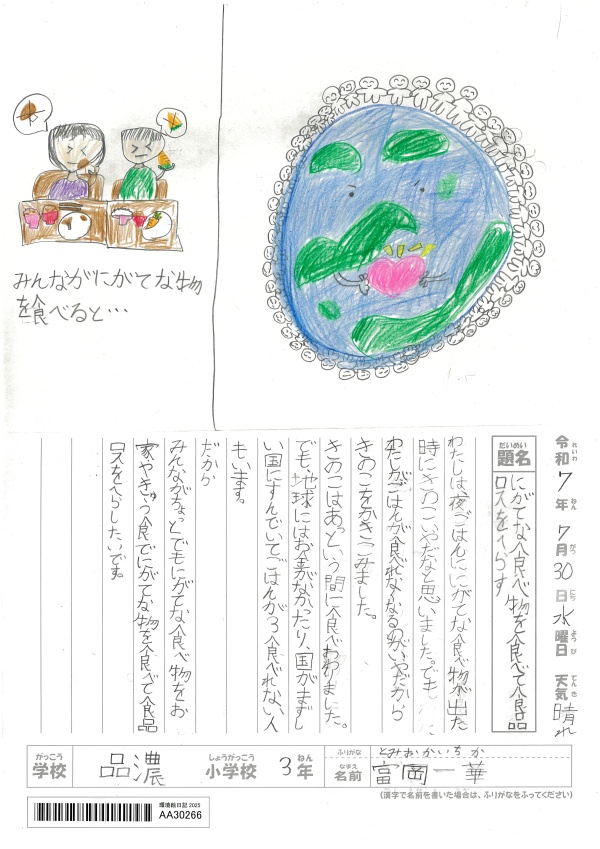 みんながにがてな物
を食べると…
令和7年7月30日水曜日 天気晴れ
れいわ ねん がつ にち ようび てんき
だいめい
題名
にがてな食べ物を食べて食品
ロスをへらす
わたしは夜ごはんににがてな食べ物が出た
時にきのこいやだなと思いました。でも
わたしがごはんが食べれなくなるのがいやだから
きのこをかきこみました。
きのこはあっという間に食べおわりました。
でも、地球にはお金がなかったり、国がまずし
い国にすんでいてごはんが3食べれない人
もいます。
だから
みんながちょっとでもにがてな食べ物をお
家やきゅう食でにがてな物を食べて食品
ロスをへらしたいです。
がっこう しょうがっこう ねん
学校 品濃 小学校 3年
ふりがな とみおかいちか
なまえ
名前 富岡一華
(漢字で名前を書いた場合は、ふりがなをふってください)
環境絵日記 2025
AA30266